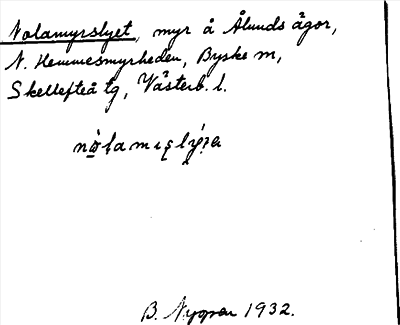 Nolamyrslyet, myr å Ålunds ägor,
N. Hemmesmyrheden, Byske m,
Skellefteå tg, Västerb. l.
B. Nygren 1932.